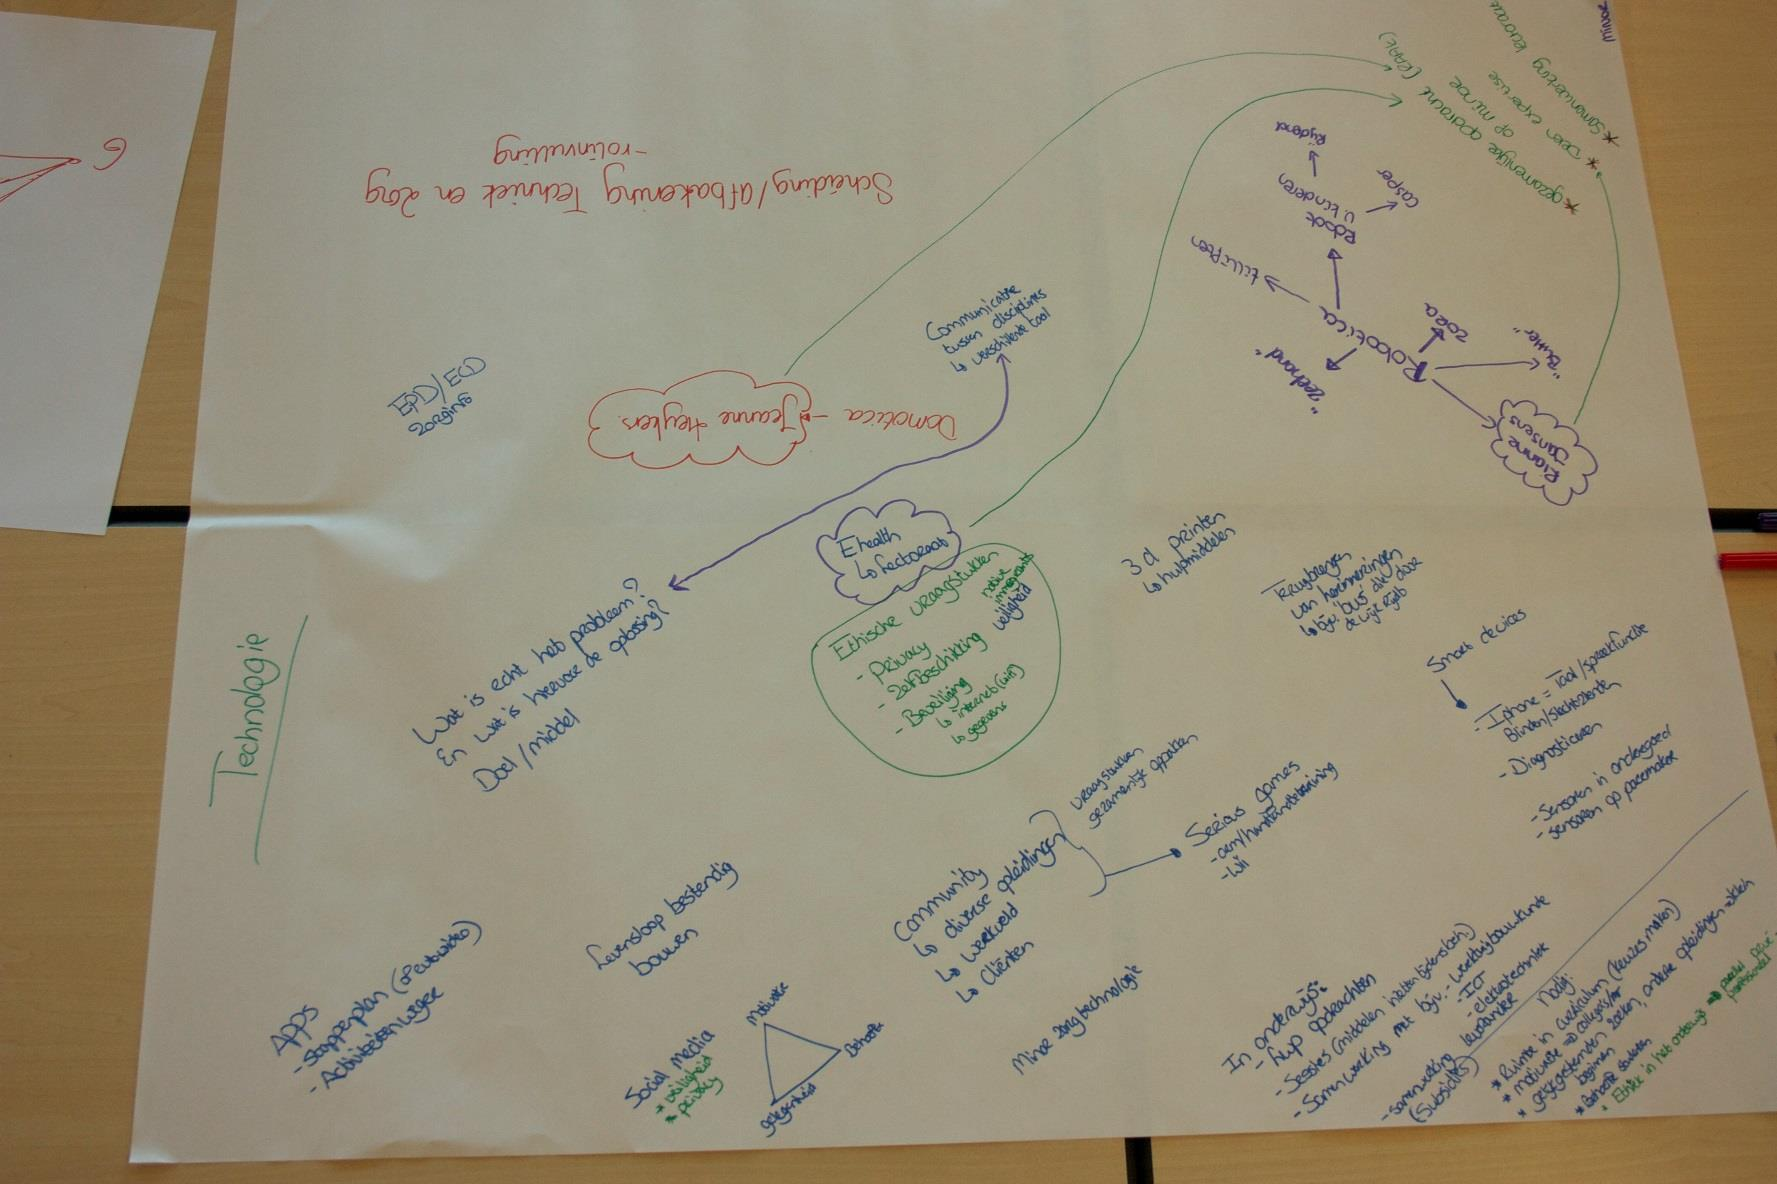 Technologie
Scheiding/afbakening Techniek en zorg
-rolinvulling
EPD/ECD
zorginfo
Domotica - Jeanne Heykers
Communicatie
tussen disciplines
↳ verschillende taal
Wat is echt het probleem?
En wat is hiervoor de oplossing?
Doel/middel
Ehealth
↳ Lectoraat
Ethische vraagstukken
- Privacy
- Zelfbeschikking
- Beveiliging
↳ internet (wifi)
↳ gegevens
native
immigrants
veiligheid
* Samenwerking lectoraat
* Delen expertise
op minor
* gezamenlijke opdracht (RAAK)
Minor
Robotica
tilliften
Robot
v kinderen
Rijdend
Casper
Zora
"Butler"
"zeehond"
Rianne
Jansens
3d printen
↳ hulpmiddelen
Terugbrengen
van herinneringen
↳ bijv. "bus" die
door de wijk rijdt
Smart devices
- Iphone = Taal/spraakfunctie
Blinden/slechtzienden
- Diagnosticeren
- Sensoren in ondergoed
- sensoren op pacemaker
Community
↳ diverse opleidingen
↳ werkveld
↳ Cliënten
vraagstukken
gezamenlijk oppakken
Serious games
- arm/handfunctietraining
- Wii
Apps
- Stappenplan (of evt video)
- Activiteitenwijzer
Levensloop bestendig
bouwen
Social media
* veiligheid
* privacy
Motivatie
Behoefte
gelegenheid
Minor zorgtechnologie
In onderwijs:
- hulp opdrachten
- Sessies (middelen
- Samenwerking met bijv. - werktuigbouwkunde
- ICT
- elektrotechniek
- samenwerking leverancier
(Subsidies)
Nodig:
* Ruimte in curriculum (keuzes maken)
* motivatie ⇒ collega's/
* gelijkgestemden zoeken, andere opleidingen
beginnen
* Behoefte
* Ethiek in het onderwijs ⇒